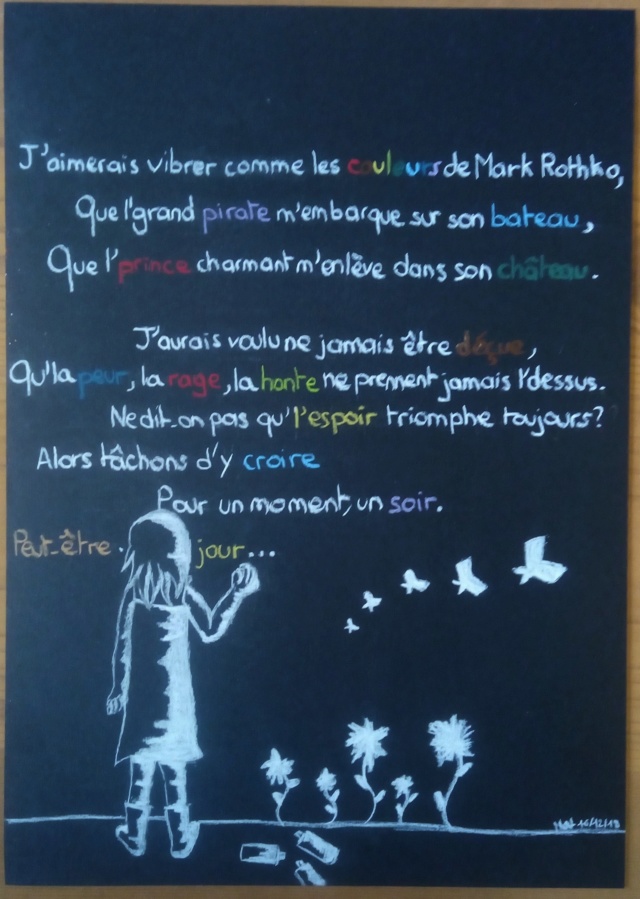 J'aimerais vibrer comme les couleurs de Mark Rothko,
Que l'grand pirate m'embarque sur son bateau,
Que l'prince charmant m'enlève dans son château.
J'aurais voulu ne jamais être déçue,
Qu'la peur, la rage, la honte ne prennent jamais l'dessus.
Ne dit-on pas qu'l'espoir triomphe toujours?
Alors tâchons d'y croire
Pour un moment, un soir.
Peut-être. jour...